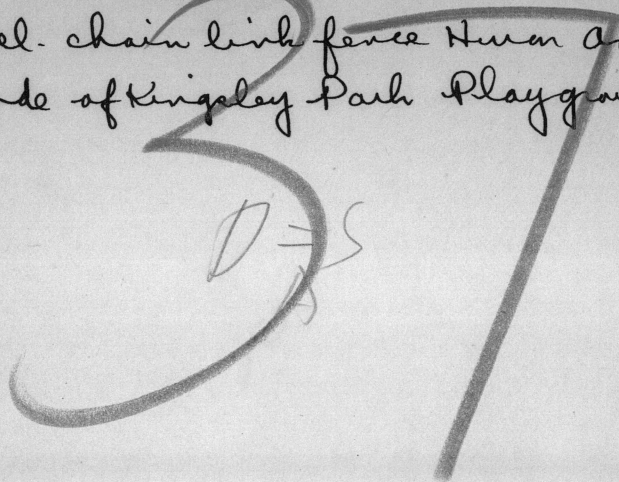 el. chain link fence Huron a
de of Kingsley Park Playgrou
37
D = S